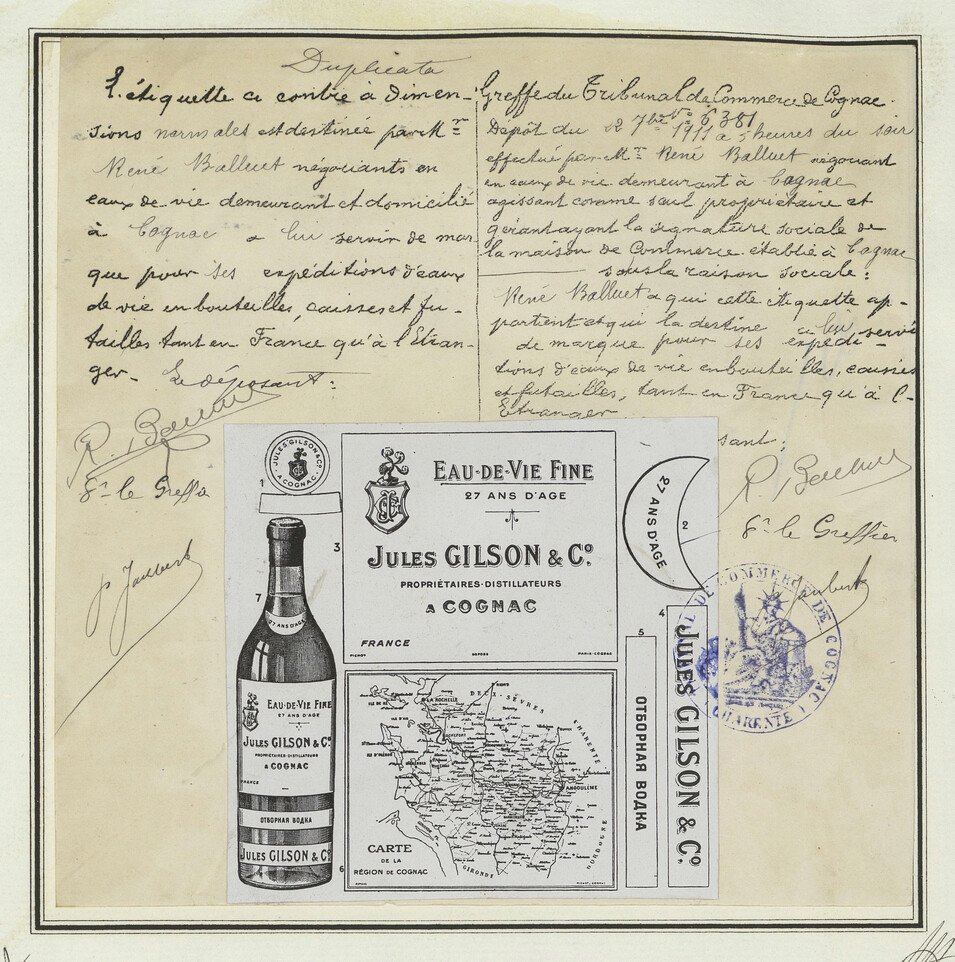 Duplicata
L'étiquette ci contre à dimen-
sions normales est destinée par Mr
René Balluet négociants en
eaux de vie demeurant et domicilié
à Cognac a lui servir de mar
que pour ses expéditions d'eaux
de vie en bouteilles, caisses et fu-
tailles tant en France qu'à l'Etran-
ger. Le déposant:
le Greffier
Greffe du Tribunal de Commerce de Cognac.
No 6381
Dépôt du 12 7bre 1911 à 5 heures du soir
effectué par Mr René Balluet négociant
en eaux de vie demeurant à Cognac
agissant comme seul propriétaire et
gérant ayant la signature sociale de
la maison de Commerce établie à Cognac
sous la raison sociale:
René Balluet a qui cette étiquette ap-
partient et qui la destine a lui servir
de marque pour ses expédi-
tions d'eaux de vie en bouteilles, caisses
et futailles, tant en France qu'à l'-
Etranger
sant:
le Greffier
JULES GILSON & Co
A COGNAC
1
EAU-DE-VIE FINE
27 ANS D'AGE
JULES GILSON & Co.
PROPRIÉTAIRES-DISTILLATEURS
A COGNAC
FRANCE
DEPOSE
3
27 ANS D'AGE
2
7
27 ANS D'AGE
EAU-DE-VIE FINE
27 ANS D'AGE
JULES GILSON & Co.
PROPRIÉTAIRES-DISTILLATEURS
A COGNAC
FRANCE
ОТБОРНАЯ ВОДКА
JULES GILSON & Co
6
DEUX-SÈVRES
LA ROCHELLE
ILE DE RÉ
ROCHEFORT
CHARENTE
ANGOULÊME
DORDOGNE
GIRONDE
CARTE
DE LA
RÉGION DE COGNAC
5
ОТБОРНАЯ ВОДКА
4
JULES GILSON & Co.
DE COMMERCE DE COGNAC
(CHARENTE)